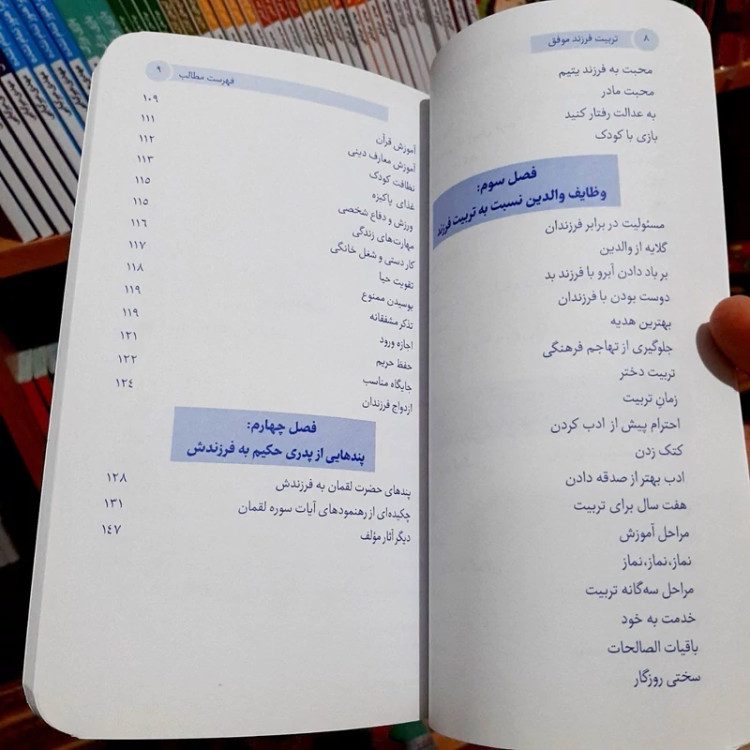 ۸ تربیت فرزند موفق
محبت به فرزند یتیم
محبت مادر
به عدالت رفتار کنید
بازی با کودک
فصل سوم:
وظایف والدین نسبت به تربیت فرزند
مسئولیت در برابر فرزندان
گلایه از والدین
بر باد دادن آبرو با فرزند بد
دوست بودن با فرزندان
بهترین هدیه
جلوگیری از تهاجم فرهنگی
تربیت دختر
زمانِ تربیت
احترام پیش از ادب کردن
کتک زدن
ادب بهتر از صدقه دادن
هفت سال برای تربیت
مراحل آموزش
نماز،نماز،نماز
مراحل سه‌گانه تربیت
خدمت به خود
باقیات الصالحات
سختی روزگار
فهرست مطالب ۹
آموزش قرآن ۱۰۹
آموزش معارف دینی ۱۱۱
نظافت کودک ۱۱۲
غذای پاکیزه ۱۱۳
ورزش و دفاع شخصی ۱۱۵
مهارت‌های زندگی ۱۱۵
کار دستی و شغل خانگی ۱۱۶
تقویت حیا ۱۱۷
بوسیدن ممنوع ۱۱۸
تذکر مشفقانه ۱۱۹
اجازه ورود ۱۱۹
حفظ حریم ۱۲۱
جایگاه مناسب ۱۲۲
ازدواج فرزندان ۱۲٤
فصل چهارم:
پندهایی از پدری حکیم به فرزندش
پندهای حضرت لقمان به فرزندش ۱۲۸
چکیده‌ای از رهنمودهای آیات سوره لقمان ۱۳۱
دیگر آثار مؤلف ۱٤۷